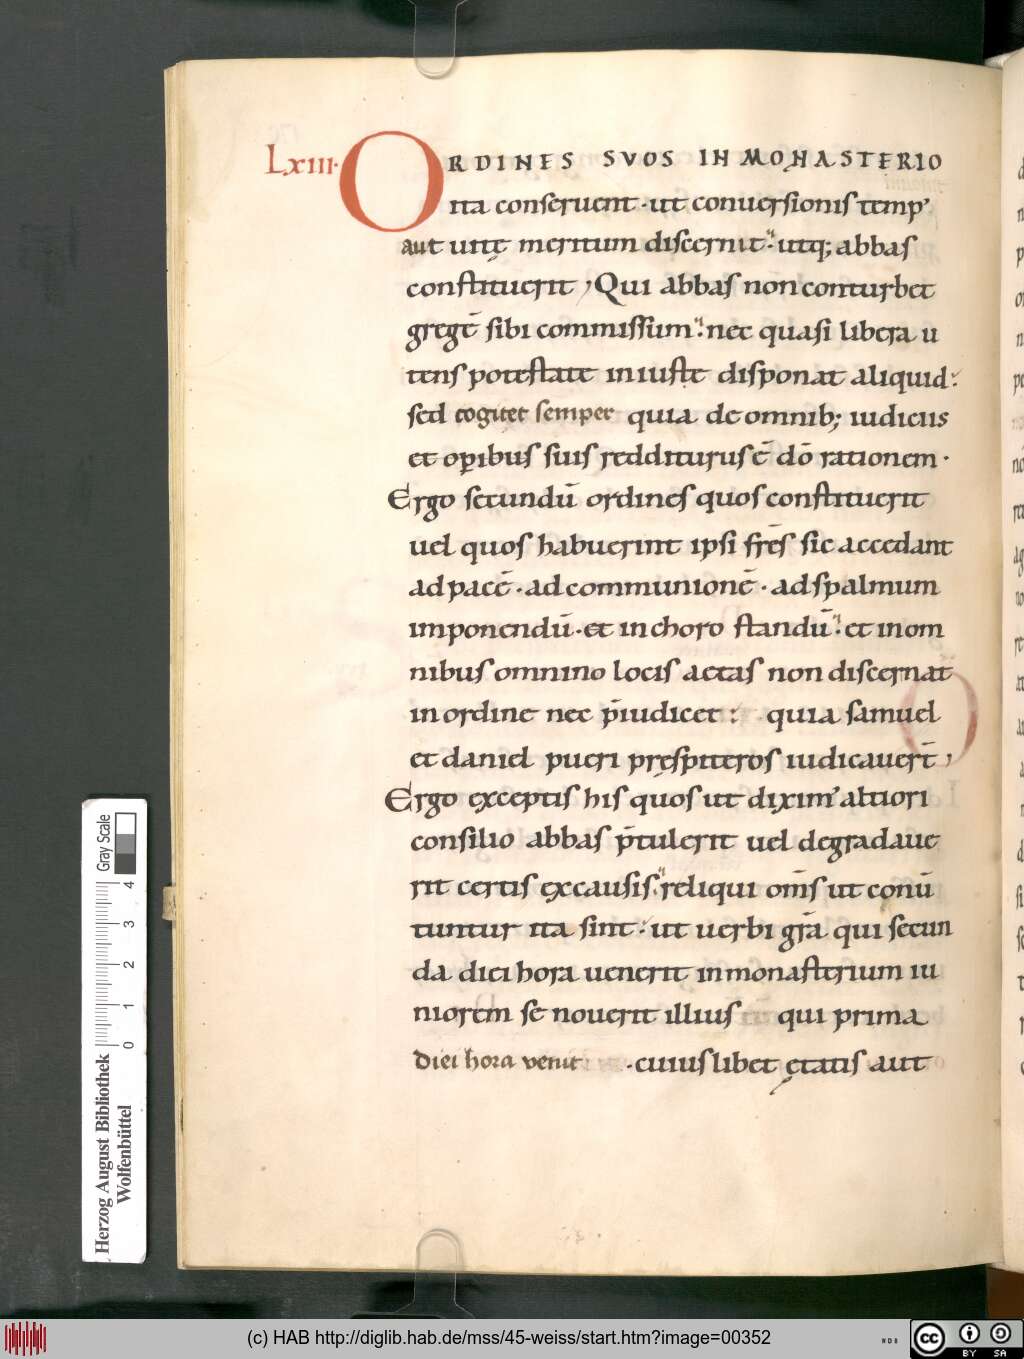 Lxiii· ORDINES SVOS IN MONASTERIO
ita conseruent · ut conuersionis temp'
aut uitę meritum discernit · utq; abbas
constituerit; Qui abbas non conturbet
gregē sibi commissum · nec quasi libera u
tens potestate iniuste disponat aliquid ·
sed cogitet semper quia de omnib; iudiciis
et op̱ibus suis redditurus ē dō rationem ·
Ergo secundū ordines quos constituerit
uel quos habuerint ipsi frēs sic accedant
ad pacē · ad communionē · ad spalmum
imponendū · et in choro standū · et in om
nibus omnino locis aetas non discernat
in ordine nec p̄iudicet : quia samuel
et daniel pueri presp̱iteros iudicauer̄t;
Ergo exceptis his quos ut dixim' altiori
consilio abbas p̄tulerit uel degradaue
rit certis ex causis · reliqui om̄s ut conū
tuntur ita sint · ut uerbi grā qui secun
da diei hora uenerit in monasterium iu
niorem se nouerit illius qui prima
diei hora venit · cuiuslibet ętatis aut
Gray Scale
0 1 2 3 4
Herzog August Bibliothek
Wolfenbüttel
(c) HAB http://diglib.hab.de/mss/45-weiss/start.htm?image=00352
WDB
cc BY SA